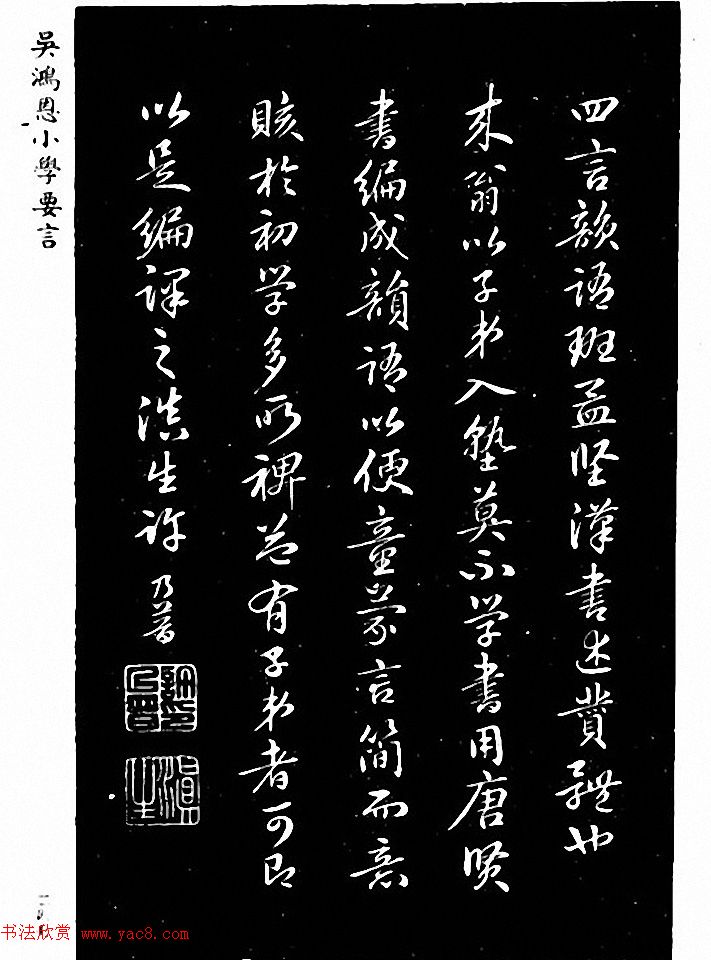 四言韻語班孟堅漢書述贊體也
来翁以子弟入塾莫不學書用唐賢
書編成韻語以便童蒙言簡而意
賅於初學多所裨益有子弟者可即
以是編課之滇生許乃普
許印乃普
滇生
吳鴻恩小學要言
书法欣赏 www.yac8.com